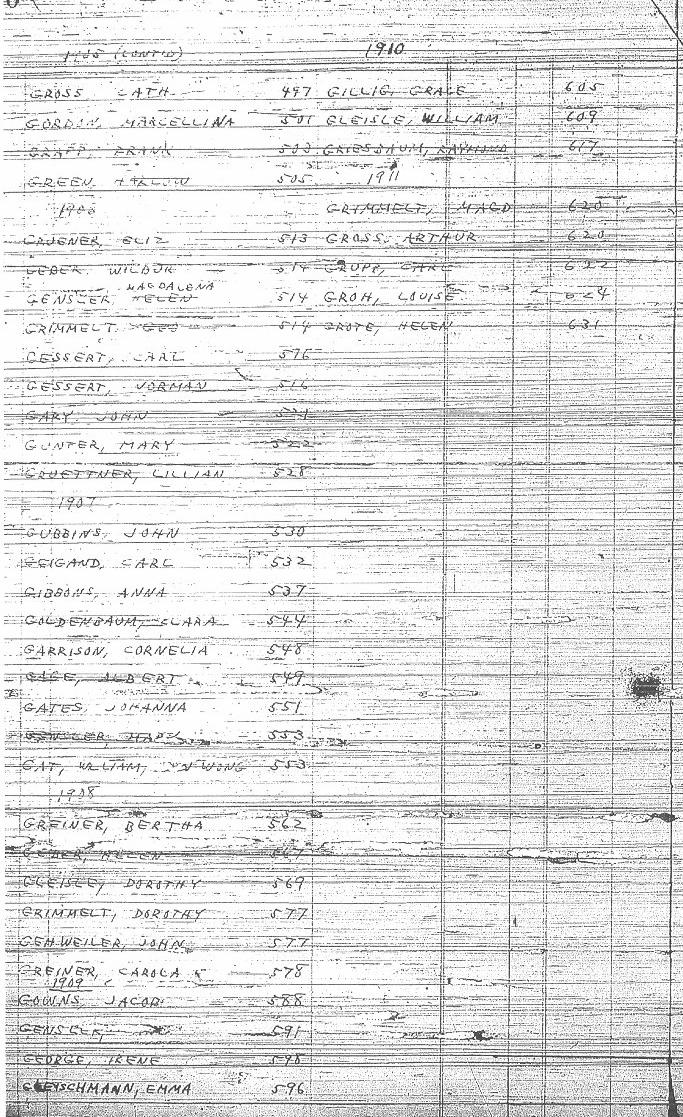 1905 (CONT'D)
GROSS CATH 497
GORDON, MARCELLINA 501
GRAFF, FRANK 503
GREEN, HARLOW 505
1906
GRUENER, ELIZ 513
GEBER, WILBUR 514
MAGDALENA
GENSLER, HELEN 514
GRIMMELT, GEO 514
GESSERT, CARL 516
GESSERT, NORMAN 516
GARY, JOHN 521
GUNTER, MARY 522
GRUETTNER, LILLIAN 528
1907
GUBBINS, JOHN 530
GEIGAND, CARL 532
GIBBONS, ANNA 537
GOLDENBAUM, CLARA 544
GARRISON, CORNELIA 548
GAGE, ALBERT 549
GATES, JOHANNA 551
GENSLER, 553
GAT, WILLIAM, WONG 553
1908
GREINER, BERTHA 562
GEBER, HELEN
GLEISLE, DOROTHY 569
GRIMMELT, DOROTHY 577
GEHWEILER, JOHN 577
GREINER, CAROLA 578
1909
GOWNS, JACOB 588
GENSLER, 591
GEORGE, IRENE
GLEYSCHMANN, EMMA 596
1910
GILLIG, GRACE 605
GLEISLE, WILLIAM 609
GRIESBAUM, RAYMOND 617
1911
GRIMMELT, MAGD 620
GROSS, ARTHUR 620
GRUPP, CARL 622
GROH, LOUISE 624
GROTE, HELEN 631